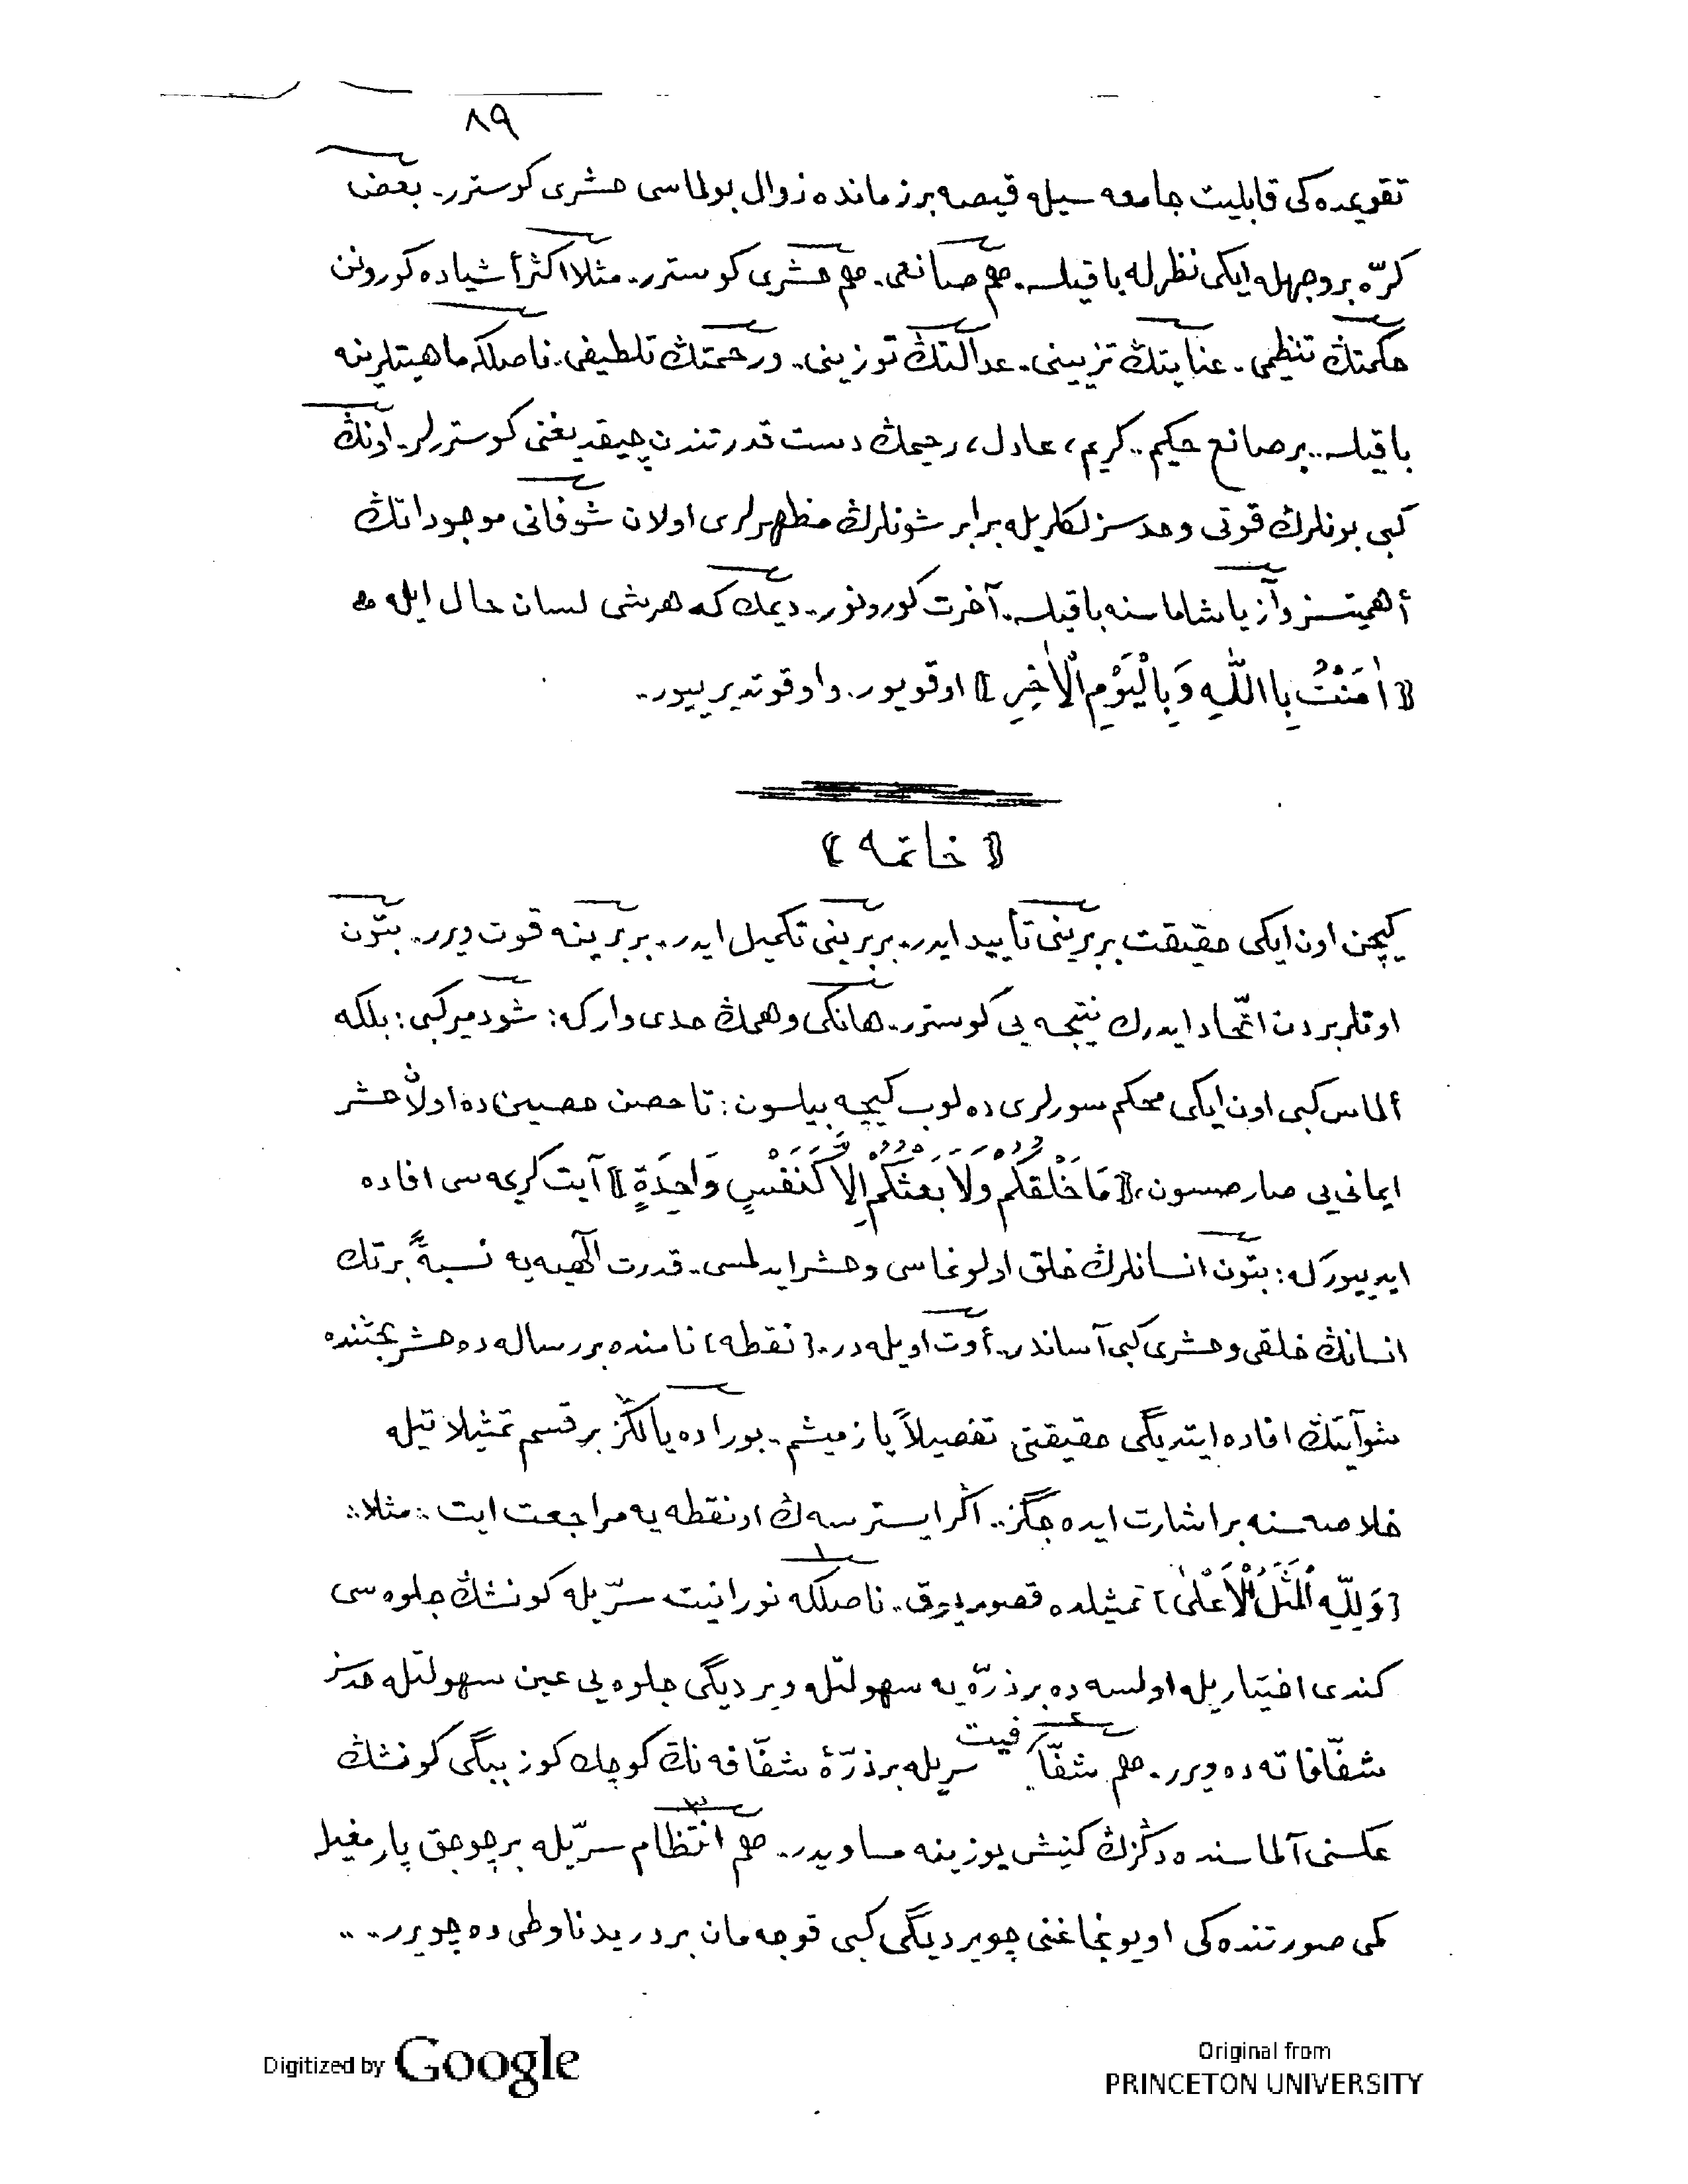 ٨٩
تقويمده‌كى قابليت جامعه سيله قيصه برزمانده زوال بولماسى حشرى كوسترر.. بعض
كرّه بر وجهله ايكى نظرله باقيلسه.. هم صانعى. هم حشرى كوسترر.. مثلا اكثر أشياده كورونن
حكمتڭ تنظيمى. عنايتڭ تزيينى. عدالتڭ توزينى.. ورحمتڭ تلطيفى. ناصلكه ماهيتلرينه
باقيلسه.. بر صانع حكيم.. كريم، عادل، رحيمڭ دست قدرتندن چيقديغنى كوسترلر.. اونڭ
كبى بونلرڭ قوتى وحدسزلكلريله برابر شونلرڭ مظهرلرى اولان شو فانى موجوداتڭ
أهميتسز وآز ياشاماسنه باقيلسه. آخرت كورونور.. ديمك كه هرشى لسان حال ايله
﴿اٰمَنْتُ بِااللّٰهِ وَبِالْيَوْمِ الْاٰخِرِ﴾ اوقويور. و اوقوتديرييور..
﴿ خاتمه ﴾
كيچن اون ايكى حقيقت بربرينى تأييد ايدر.. بربرينى تكميل ايدر.. بربرينه قوت ويرر.. بتون
اونلر بردن اتّحاد ايدرك نتيجه يى كوسترر.. هانكى وهمڭ حدى واركه: شو دمير كبى: بلكه
ألماس كبى اون ايكى محكم سورلرى ده لوب كيچه بيلسون: تا حصن حصينده اولان حشر
ايمانى يى صارصسون، ﴿مَا خَلْقُكُمْ وَلَا بَعْثُكُمْ اِلَّا كَنَفْسٍ وَاحِدَةٍ﴾ آيت كريمه سى افاده
ايدييوركه: بتون انسانلرڭ خلق اولونماسى وحشر ايدلمسى.. قدرت الٓهيه يه نسبةً برتك
انسانڭ خلقى وحشرى كبى آساندر.. أوت اويله در.. [نقطه] نامنده بر رساله ده حشر بحثنده
شو آيتڭ افاده ايتديگى حقيقتى تفصيلاً يازمشم.. بوراده يالڭز بر قسم تمثيلاتيله
خلاصه سنه بر اشارت ايده جگز.. اگر ايسترسه ڭ او نقطه يه مراجعت ايت : مثلا :
[وَلِلّٰهِ الْمَثَلُ الْاَعْلٰى] تمثيلده قصور يوق.. ناصلكه نورانيت سرّيله كونشڭ جلوه سى
١
كندى اختياريله اولسه ده بر ذرّه يه سهولتله ويرديگى جلوه يى عين سهولتله حدسز
شفّافاته ده ويرر.. هم شفّافيت سريله بر ذرّۀ شفّافه نڭ كوچك كوز ببگى كونشڭ
٢
عكسنى آلماسنده دڭزڭ كنيش يوزينه مساويدر.. هم انتظام سرّيله بر چوجق پارمغيله
٣
كمى صورتنده كى اويونجاغنى چويرديگى كبى قوجه مان بر دريدناوطى ده چويرر..
Digitized by Google
Original from
PRINCETON UNIVERSITY